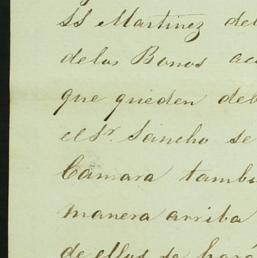 SS Martinez del
de los Bonos ac
que queden deb
el Sr. Sancho se
Cámara tambi
manera arriba
de ellas se hará